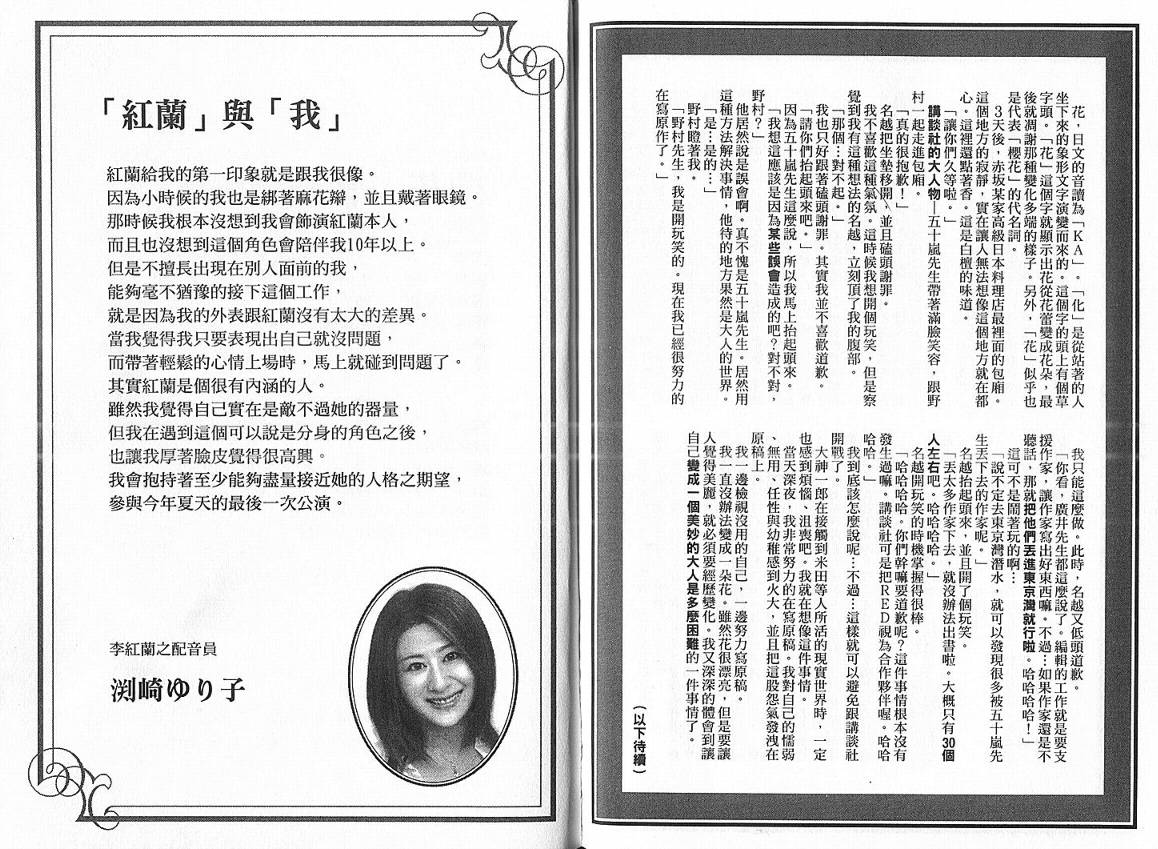 「紅蘭」與「我」
紅蘭給我的第一印象就是跟我很像。
因為小時候的我也是綁著麻花辮，並且戴著眼鏡。
那時候我根本沒想到我會飾演紅蘭本人，
而且也沒想到這個角色會陪伴我10年以上。
但是不擅長出現在別人面前的我，
能夠毫不猶豫的接下這個工作，
就是因為我的外表跟紅蘭沒有太大的差異。
當我覺得我只要表現出自己就沒問題，
而帶著輕鬆的心情上場時，馬上就碰到問題了。
其實紅蘭是個很有內涵的人。
雖然我覺得自己實在是敵不過她的器量，
但我在遇到這個可以說是分身的角色之後，
也讓我厚著臉皮覺得很高興。
我會抱持著至少能夠盡量接近她的人格之期望，
參與今年夏天的最後一次公演。
李紅蘭之配音員
渕崎ゆり子
花，日文的音讀為「KA」。「化」是從站著的人
坐下來的象形文字演變而來的。這個字的頭上有個草
字頭。「花」這個字就顯示出花從花蕾變成花朵，最
後就凋謝那種變化多端的樣子。另外，「花」似乎也
是代表「櫻花」的代名詞。
3天後，赤坂某家高級日本料理店最裡面的包廂。
這個地方的寂靜，實在讓人無法想像這個地方就在都
心。這裡還點著香。這是白檀的味道。
「讓你們久等啦。」
講談社的大人物—五十嵐先生帶著滿臉笑容，跟野
村一起走進包廂。
「真的很抱歉！」
名越把坐墊移開，並且磕頭謝罪。
我不喜歡這種氣氛。這時候我想開個玩笑，但是察
覺到我有這種想法的名越，立刻頂了我的腹部。
「那個…對不起。」
我也只好跟著磕頭謝罪。其實我並不喜歡道歉。
「請你們抬起頭來吧。」
因為五十嵐先生這麼說，所以我馬上抬起頭來。
「我想這應該是因為某些誤會造成的吧？對不對，
野村？」
他居然說是誤會啊。真不愧是五十嵐先生。居然用
這種方法解決事情，他待的地方果然是大人的世界。
「是…是的…」
野村瞪著我。
「野村先生，我是開玩笑的。現在我已經很努力的
在寫原作了。」
我只能這麼做。此時，名越又低頭道歉。
「你看，廣井先生都這麼說了。編輯的工作就是要支
援作家，讓作家寫出好東西嘛。不過…如果作家還是不
聽話，那就把他們丟進東京灣就行啦。哈哈哈哈！」
這可不是鬧著玩的啊…
「說不定去東京灣潛水，就可以發現很多被五十嵐先
生丟下去的作家呢。」
名越抬起頭來，並且開了個玩笑。
「丟太多作家下去，就沒辦法出書啦。大概只有30個
人左右吧。哈哈哈哈。」
名越開玩笑的時機掌握得很棒。
「哈哈哈哈。你們幹嘛要道歉呢？這件事情根本沒有
發生過嘛。講談社可是把RED視為合作夥伴喔。哈哈
哈哈。」
我到底該怎麼說呢…不過…這樣就可以避免跟講談社
開戰了。
大神一郎在接觸到米田等人所活的現實世界時，一定
也感到煩惱、沮喪吧。我就在想像這件事情。
當天深夜，我非常努力的在寫原稿。我對自己的懦弱
、無用、任性與幼稚感到火大，並且把這股怨氣發洩在
原稿上。
我一邊檢視沒用的自己，一邊努力寫原稿。
我一直沒辦法變成一朵花。雖然花很漂亮，但是要讓
人覺得美麗，就必須要經歷變化。我又深深的體會到讓
自己變成一個美妙的大人是多麼困難的一件事情了。
（以下待續）